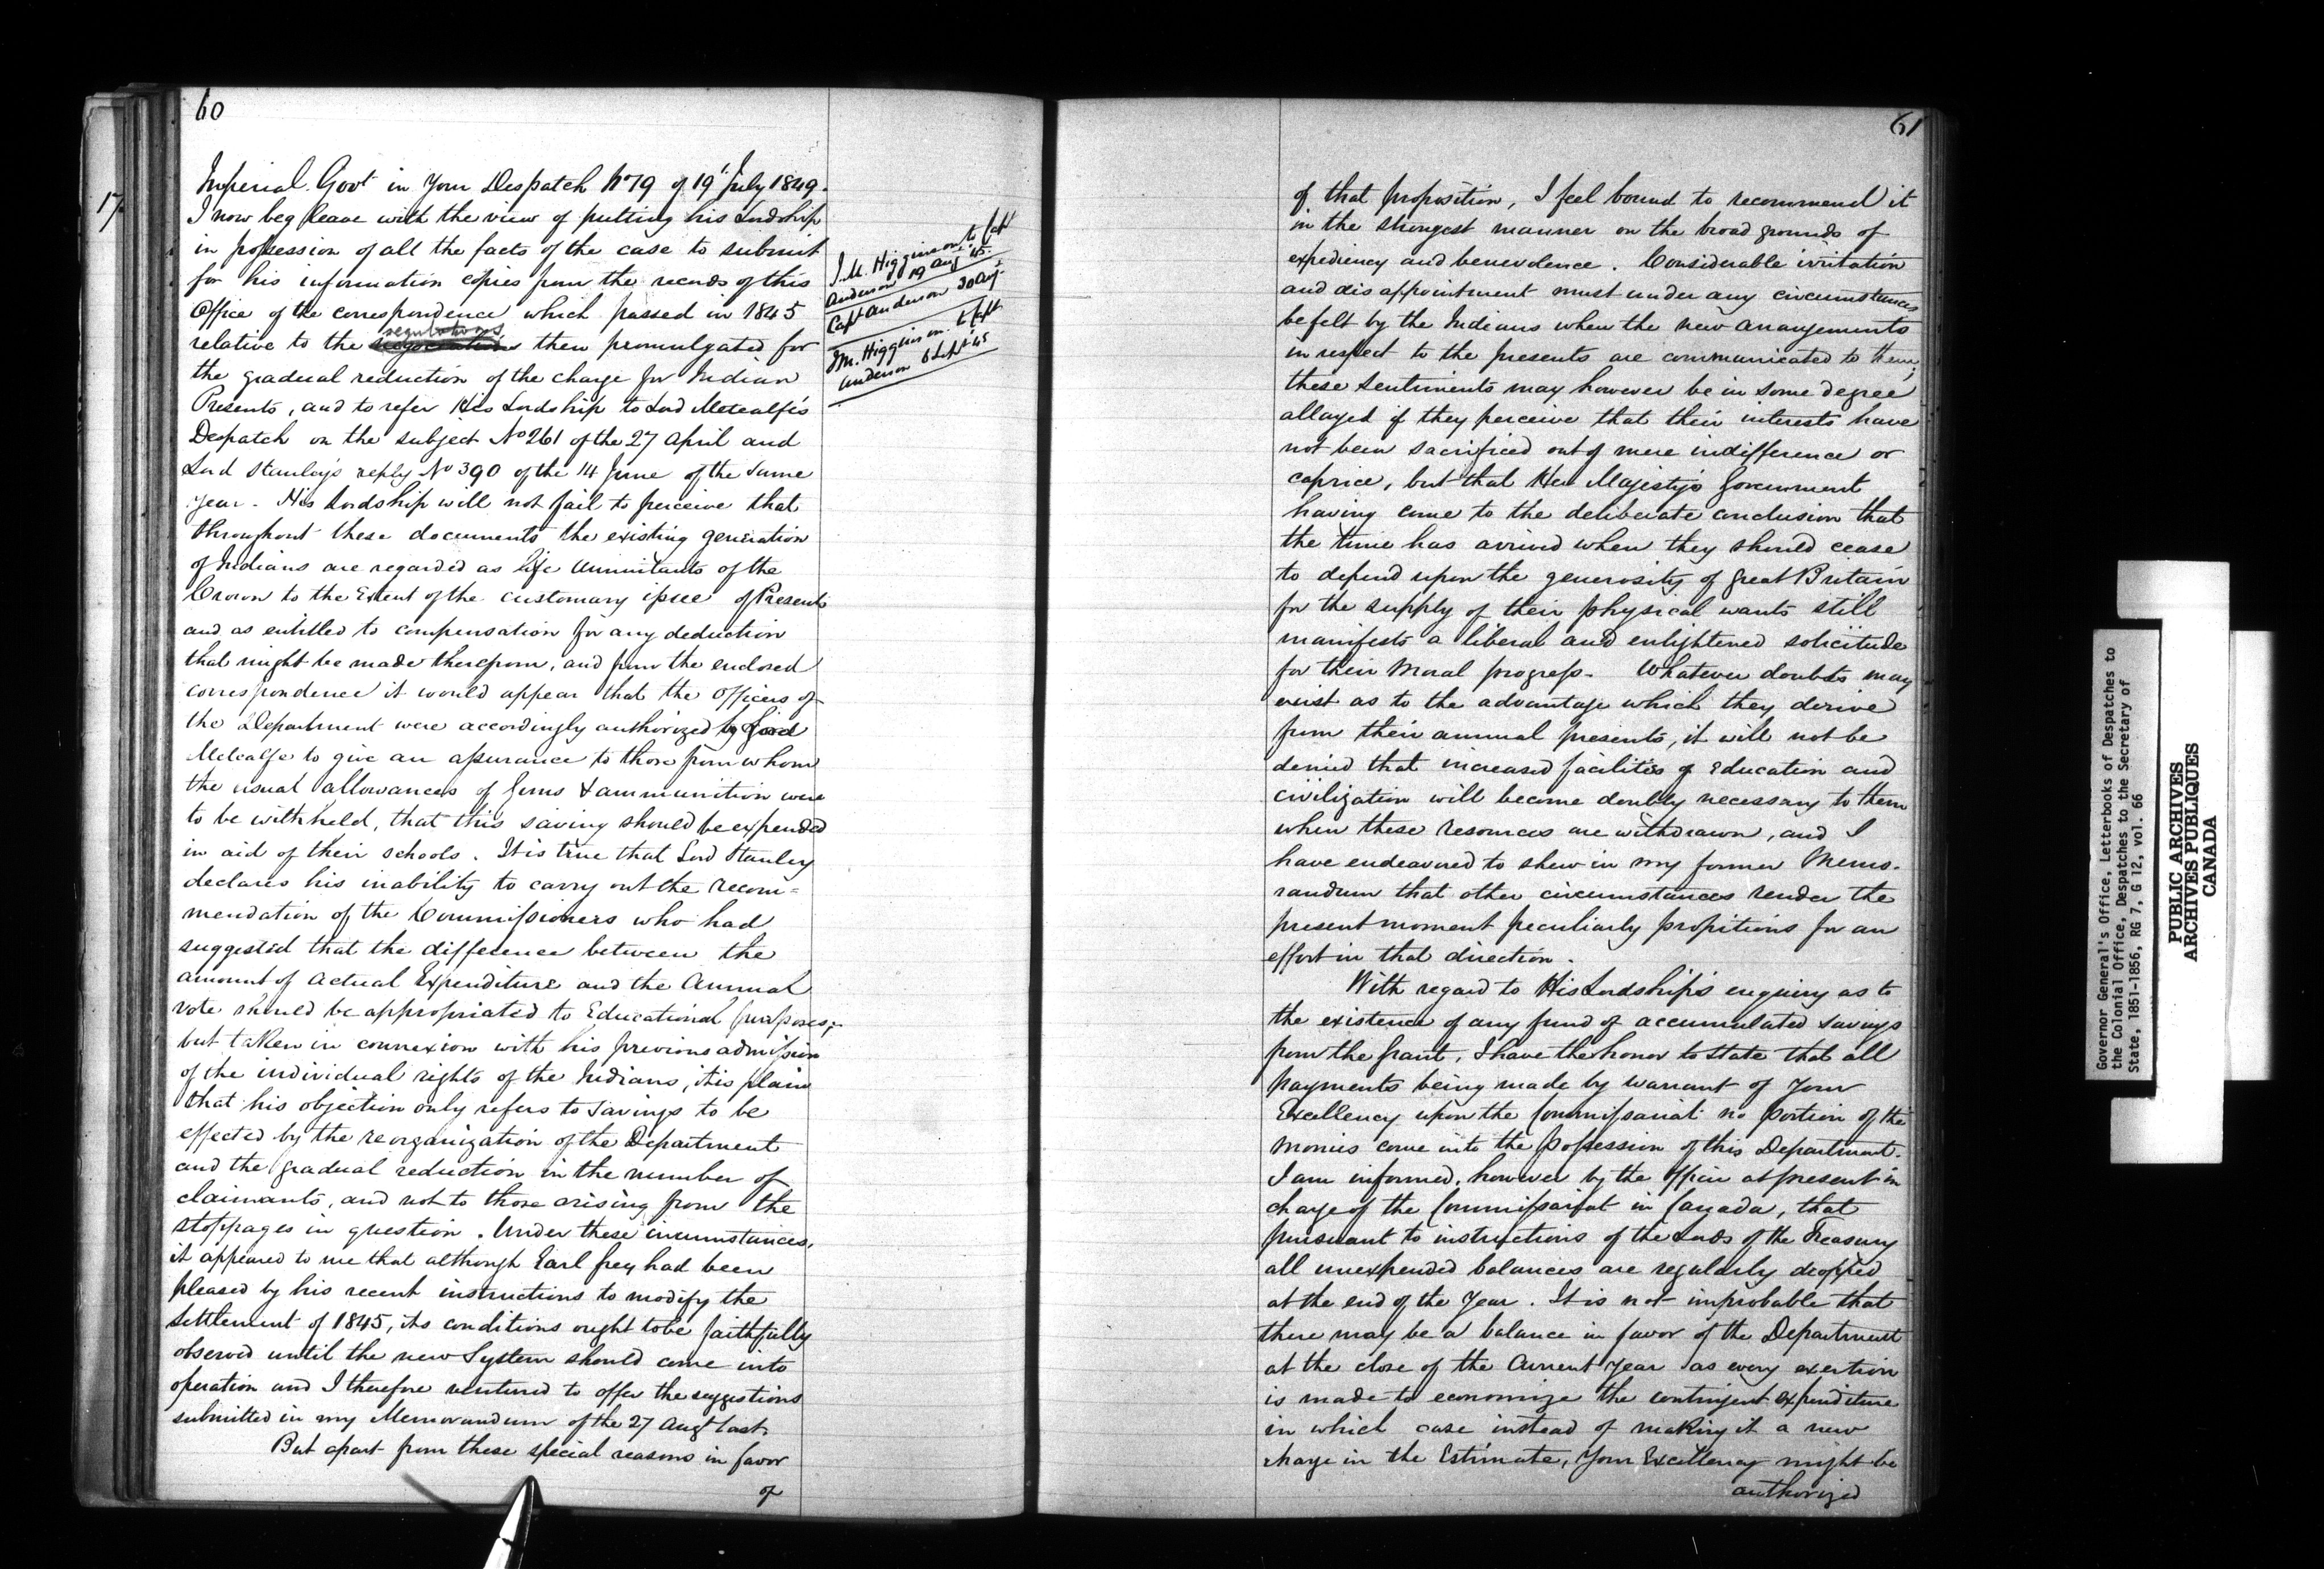 60
Imperial Govt in Your Despatch No 79 of 19t July 1849.
I now beg leave with the view of putting his Lordship
in possession of all the facts of the case to submit
for his information copies from the records of this
Office of the correspondence which passed in 1845
regulations
relative to the negociations then promulgated for
the gradual reduction of the charge for Indian
Presents, and to refer His Lordship to Lord Metcalfe's
Despatch on the subject No 261 of the 27 April and
Lord Stanley's reply No 390 of the 14 June of the same
year. His Lordship will not fail to perceive that
throughout these documents the existing generation
of Indians are regarded as life annuitants of the
Crown to the Extent of the customary issue of Presents
and as entitled to compensation for any deduction
that might be made therefrom, and from the enclosed
correspondence it would appear that the Officers of
the Department were accordingly authorized by Lord
Metcalfe to give an assurance to those from whom
the usual allowances of Guns & ammunition were
to be withheld, that this saving should be expended
in aid of their schools. It is true that Lord Stanley
declares his inability to carry out the recom=
mendation of the Commissioners who had
suggested that the difference between the
amount of actual Expenditure and the Annual
vote should be appropriated to Educational purposes;
but taken in connexion with his previous admission
of the individual rights of the Indians, it is plain
that his objection only refers to savings to be
effected by the reorganization of the Department
and the gradual reduction in the number of
claimants, and not to those arising from the
stoppages in question. Under these circumstances,
it appeared to me that although Earl Grey had been
pleased by his recent instructions to modify the
settlement of 1845, its conditions ought to be faithfully
observed until the new System should come into
operation and I therefore ventured to offer the suggestions
submitted in my Memorandum of the 27 Augt last.
But apart from these special reasons in favor
of
17.
J.M. Higginson to Capt
Anderson 19 Aug '45.
Capt Anderson 30 Aug
J.M. Higginson to Capt
Anderson 6 Sept '45
61
of that proposition, I feel bound to recommend it
in the strongest manner on the broad grounds of
expediency and benevolence. Considerable irritation
and disappointment must under any circumstances
be felt by the Indians when the new arrangements
in respect to the presents are communicated to them;
these sentiments may however be in some degree
allayed if they perceive that their interests have
not been sacrificed out of mere indifference or
caprice, but that Her Majesty's Government
having come to the deliberate conclusion that
the time has arrived when they should cease
to depend upon the generosity of Great Britain
for the supply of their physical wants still
manifests a liberal and enlightened solicitude
for their Moral progress. Whatever doubts may
exist as to the advantage which they derive
from their annual presents, it will not be
denied that increased facilities of Education and
civilization will become doubly necessary to them
when these resources are withdrawn, and I
have endeavored to shew in my former Memo-
randum that other circumstances render the
present moment peculiarly propitious for an
effort in that direction.
With regard to His Lordship's enquiry as to
the existence of any fund of accumulated savings
from the Grant, I have the honor to state that all
payments being made by warrant of Your
Excellency upon the Commissariat no portion of the
monies come into the possession of this Department.
I am informed, however by the Officer at present in
charge of the Commissariat in Canada, that
pursuant to instructions of the Lords of the Treasury
all unexpended balances are regularly dropped
at the end of the Year. It is not improbable that
there may be a balance in favor of the Department
at the close of the Current year as every exertion
is made to economize the contingent expenditure
in which case instead of making it a new
charge in the Estimate, Your Excellency might be
authorized
Governor General's Office, Letterbooks of Despatches to
the Colonial Office, Despatches to the Secretary of
State, 1851-1856, RG 7, G 12, vol. 66
PUBLIC ARCHIVES
ARCHIVES PUBLIQUES
CANADA